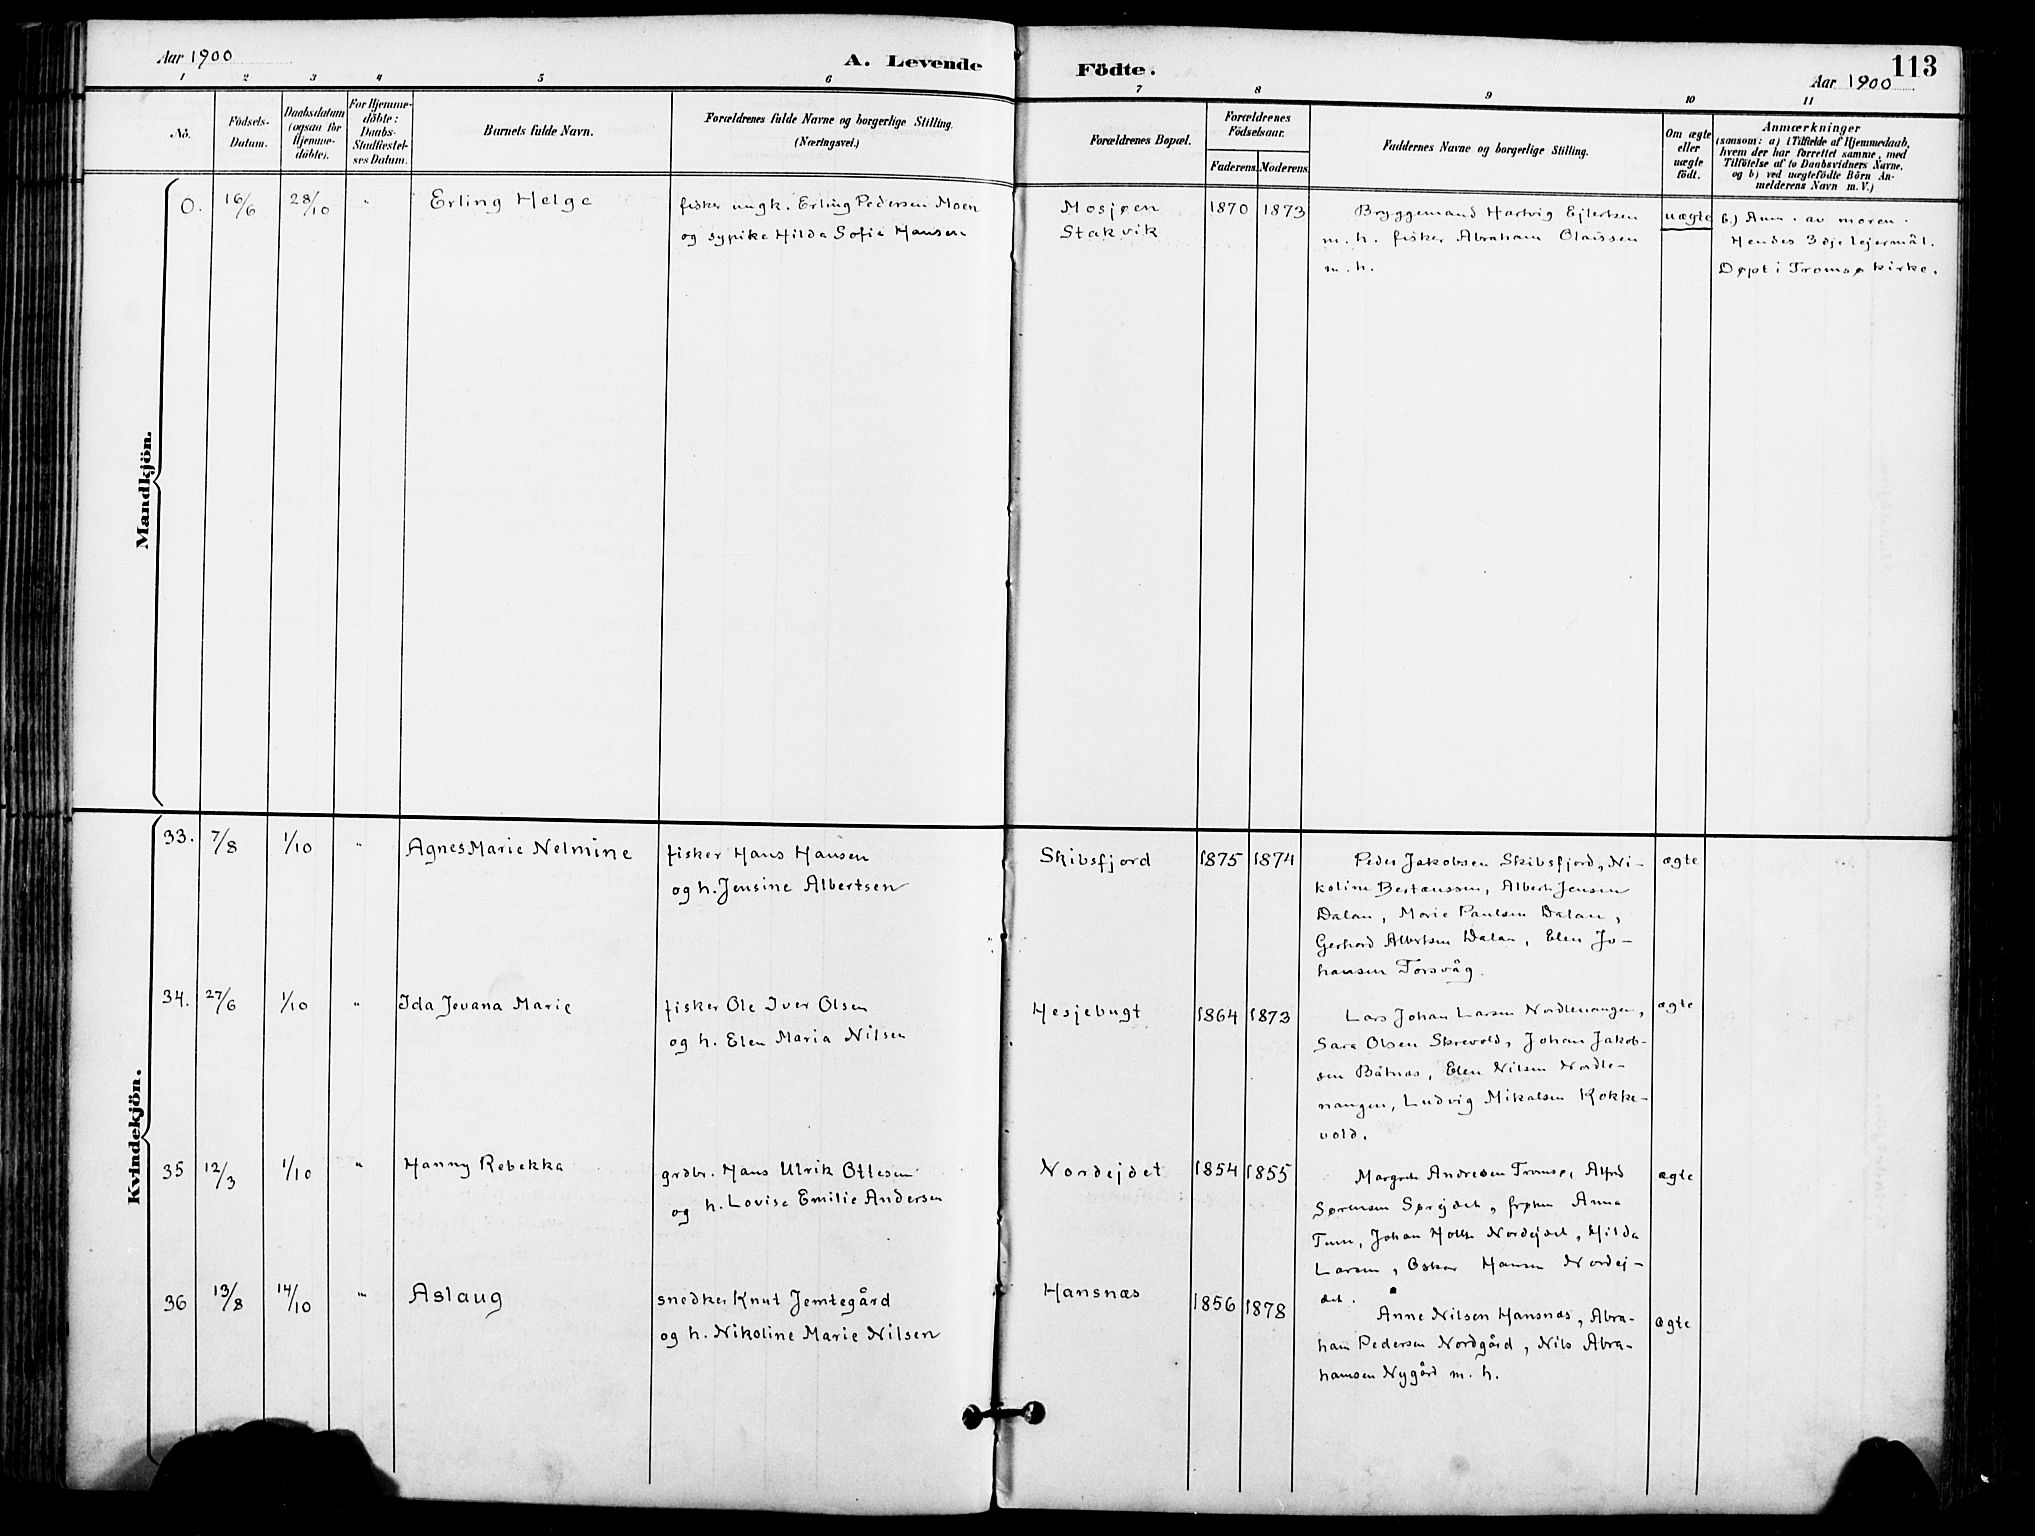 113
Aar 1900
A. Levende Födte.
Aar 1900
1 2 3 4 5 6 7 8 9 10 11
No.
Födsels-
Datum.
Daabsdatum
(ogsaa for
Hjemme-
döbte).
For Hjemme-
döbte:
Daabs-
Stadfæstel-
ses Datum.
Barnets fulde Navn.
Forældrenes fulde Navne og borgerlige Stilling.
(Næringsvei.)
Forældrenes Bopæl.
Forældrenes
Födselsaar.
Faderens. Moderens.
Faddernes Navne og borgerlige Stilling.
Om ægte
eller
uægte
födt.
Anmærkninger
(saasom: a) i Tilfælde af Hjemmedaab,
hvem der har forrettet samme, med
Tilföielse af to Daabsvidners Navne.
og b) ved uægtefödte Börn An-
melderens Navn m. V.)
Mandkjön.
0. 16/6 28/10 " Erling Helge
fisker ungk. Erling Pedersen Moen
og sypike Hilda Sofie Hansen
Mosjøen
Stakvik
1870 1873
Bryggemand Hartvig Ejlertsen
m. h. fisker Abraham Olaissen
m. h.
uægte
b.) Anm. av moren.
Hendes 3dje lejermål.
Døpt i Tromsø kirke.
Kvindekjön.
33. 7/8 1/10 " Agnes Marie Nelmine
fisker Hans Hansen
og h. Jensine Albertsen
Skibsfjord 1875 1874
Peder Jakobsen Skibsfjord, Ni-
koline Berteussen, Albert Jensen
Dalan, Marie Paulsen Dalan,
Gerhard Albertsen Dalan, Elen Jo-
hansen Torsvåg.
ægte
34. 27/6 1/10 " Ida Jevana Marie
fisker Ole Iver Olsen
og h. Elen Maria Nilsen
Hesjebugt 1864 1873
Lars Johan Larsen Nordlenangen,
Sara Olsen Skrevold, Johan Jakob-
sen Båtnæs, Elen Nilsen Nordle-
nangen, Ludvig Mikalsen Kokke-
vold.
ægte
35 12/3 1/10 " Hanny Rebekka
grdbr. Hans Ulrik Ottesen
og h. Lovise Emilie Andersen
Nordejdet 1854 1855
Margrete Andresen Tromsø, Alfred
Sørensen Sørejdet, frøken Anna
Johan Holte Nordejdet, Hilda
Larsen, Oskar Hansen Nordej-
det.
ægte
36 13/8 14/10 " Aslaug
snedker Knut Jemtegård
og h. Nikoline Marie Nilsen
Hansnæs 1856 1878
Anne Nilsen Hansnæs, Abra-
ham Pedersen Nordgård, Nils Abra-
hamsen Nygård m. h.
ægte